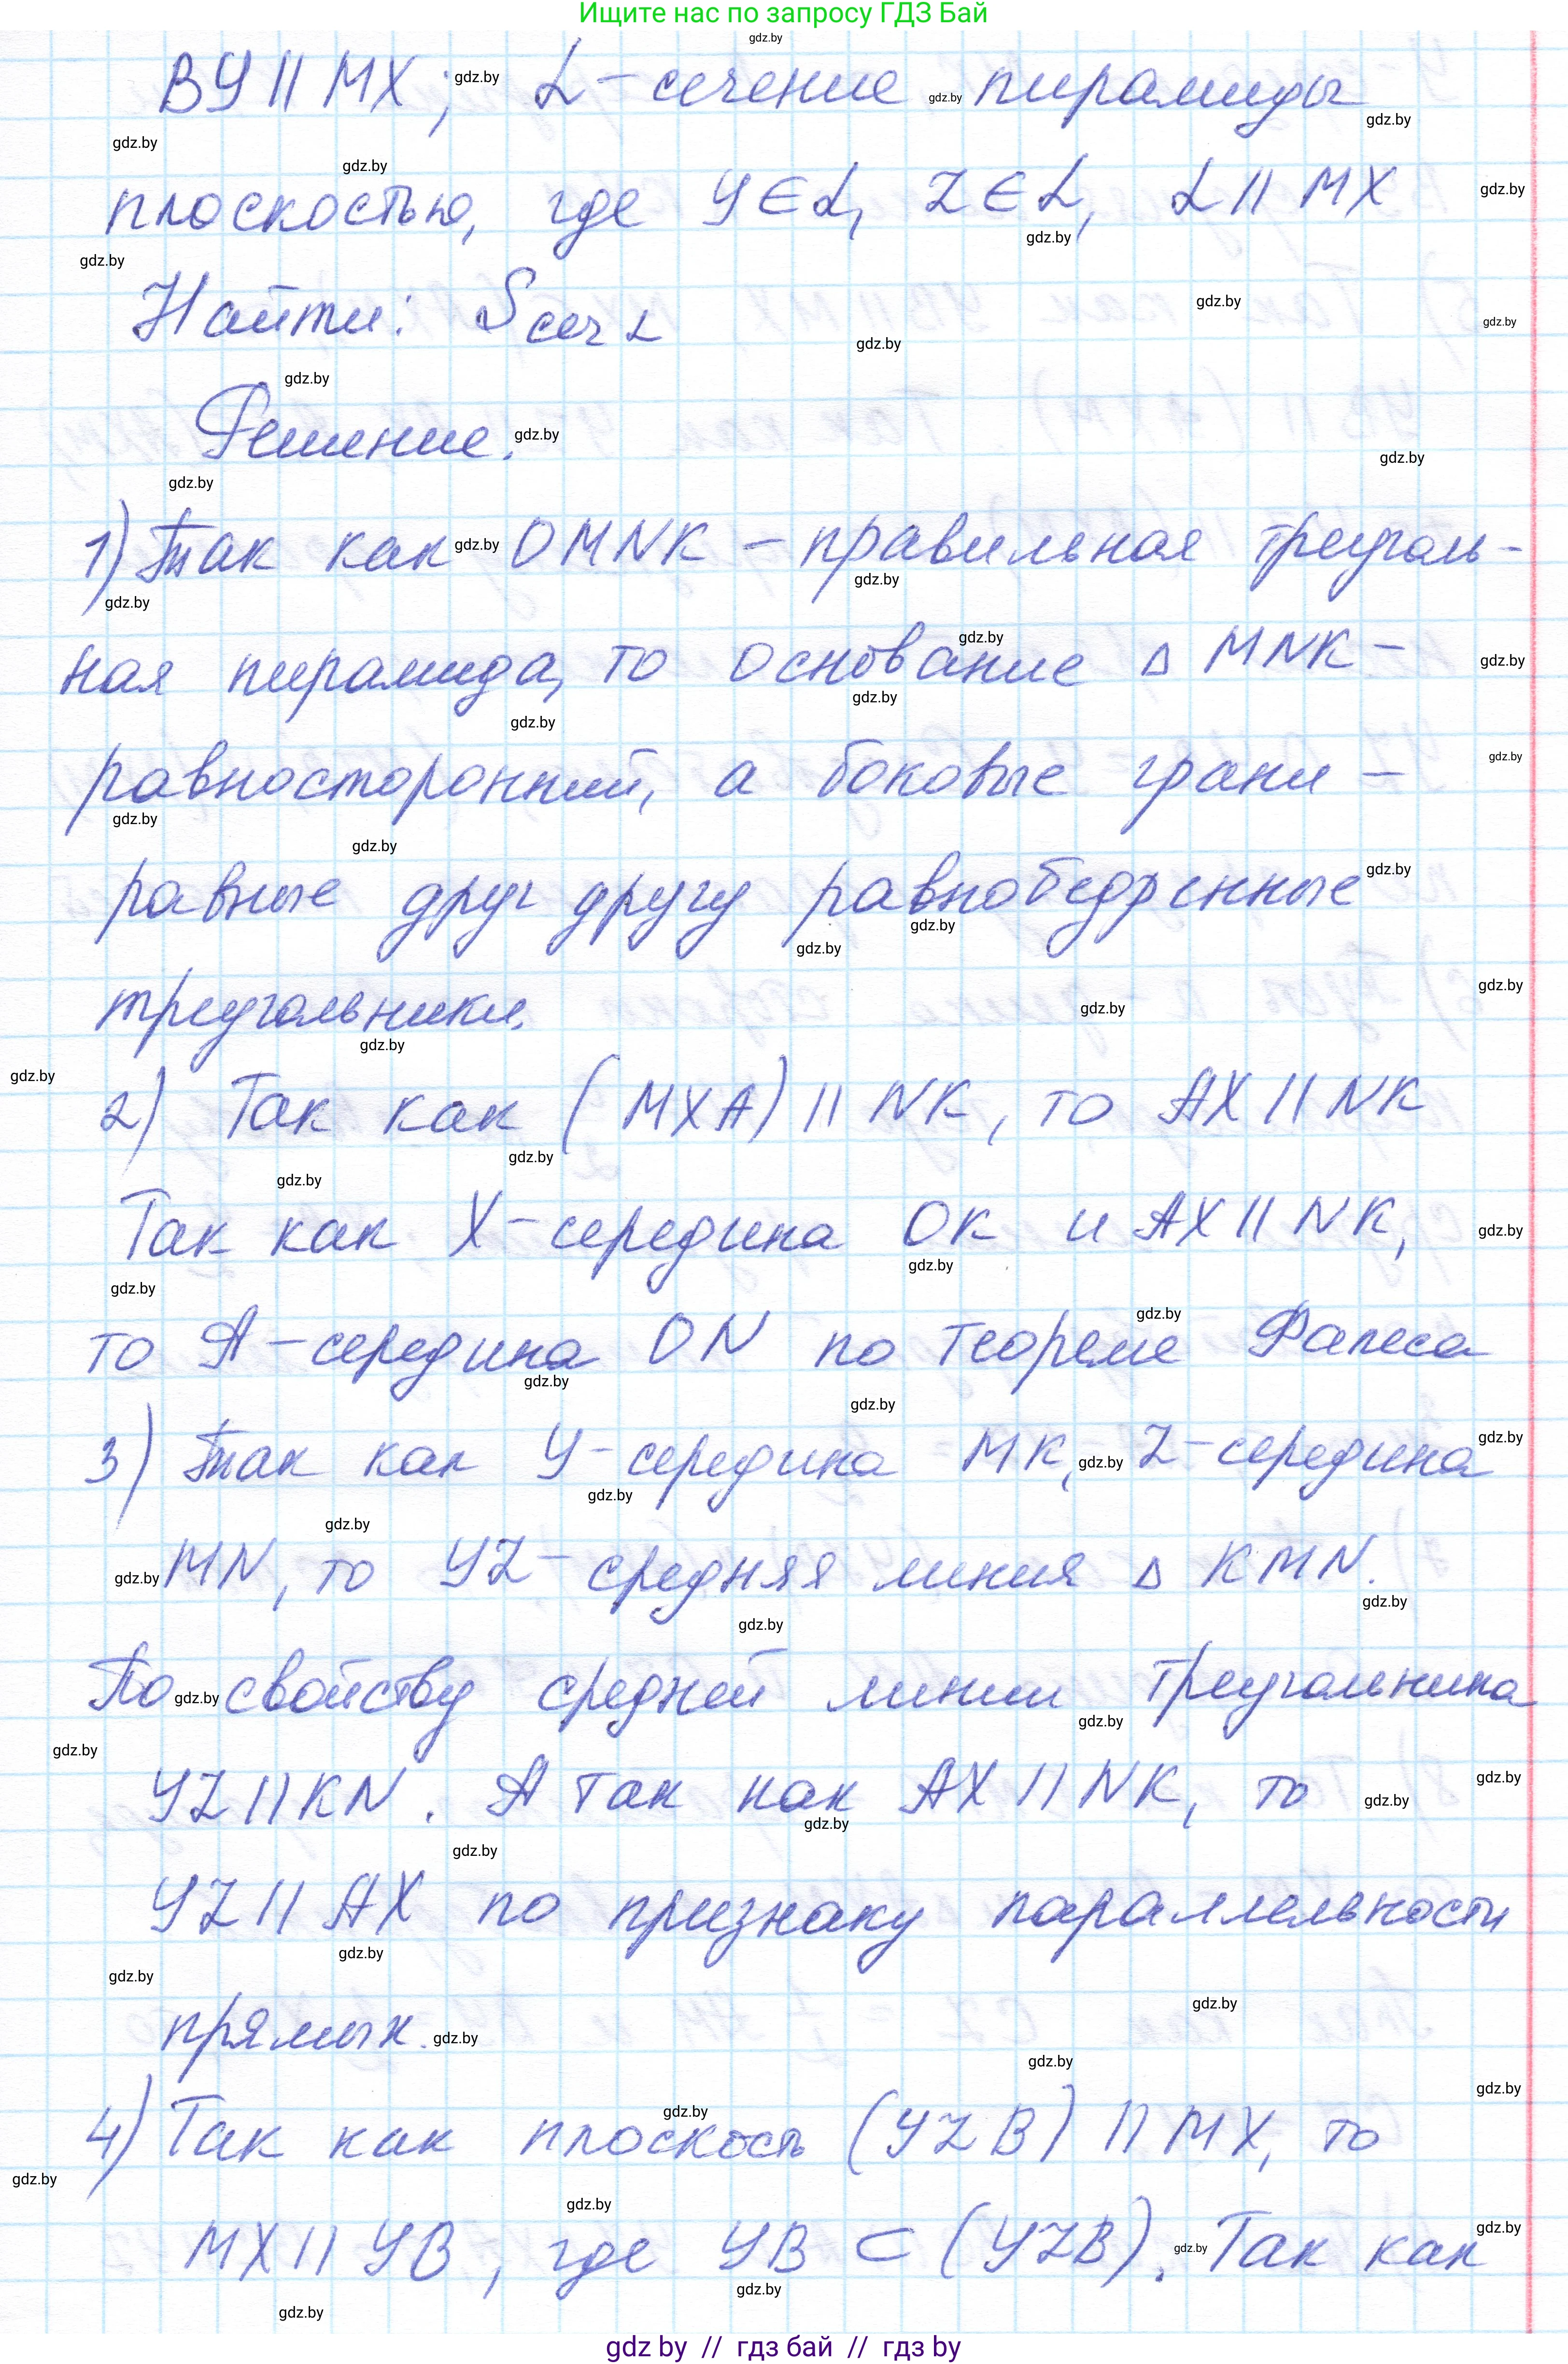 Ищите нас по запросу ГДЗ Бай
BY || MX; α - сечение пирамиды
плоскостью, где Y ∈ α, Z ∈ α, α || MX
Найти: Sсеч α
Решение.
1) Так как OMNK - правильная треуголь-
ная пирамида, то основание △ MNK -
равносторонний, а боковые грани -
равные друг другу равнобедренные
треугольники.
2) Так как (MXA) || NK, то AX || NK
Так как X - середина OK и AX || NK,
то A - середина ON по теореме Фалеса
3) Так как Y - середина MK, Z - середина
MN, то YZ - средняя линия △ KMN.
По свойству средней линии треугольника
YZ || KN. А так как AX || NK, то
YZ || AX по признаку параллельности
прямых.
4) Так как плоскость (YZB) || MX, то
MX || YB, где YB ⊂ (YZB). Так как
gdz by // гдз бай // гдз by